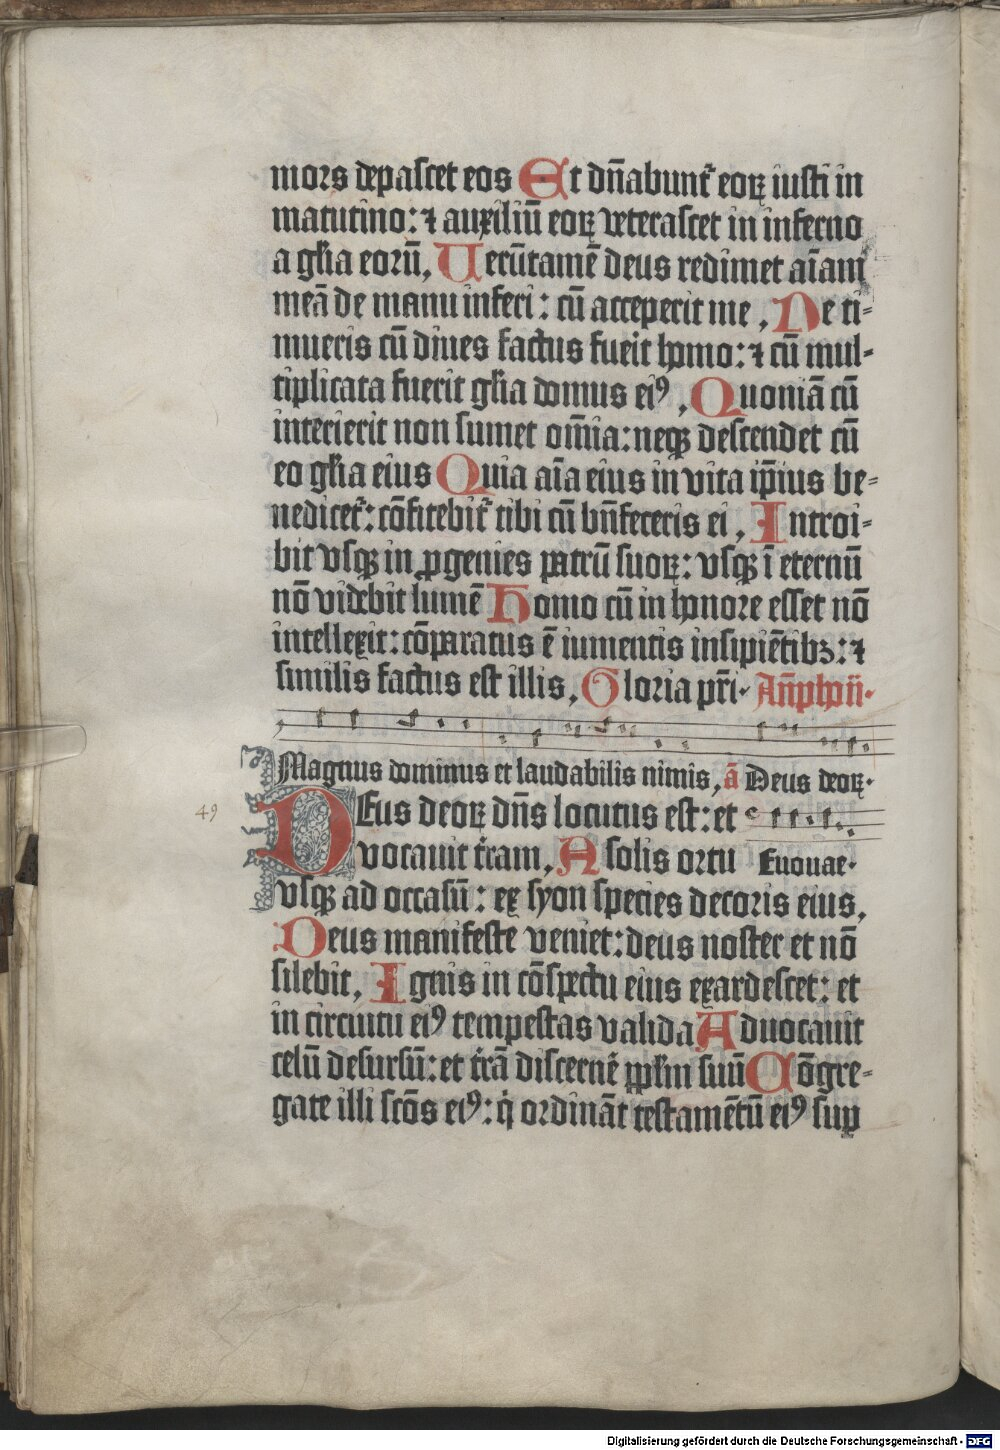 mors depascet eos Et dn̄abunt᷑ eoꝝ iusti in
matutino: ⁊ auxiliū eoꝝ veterascet in inferno
a gl̄ia eorū, Uerūtamē deus redimet aīam
meā de manu inferi: cū acceperit me, Ne ti-
mueris cū diues factus fueit homo: ⁊ cū mul-
tiplicata fuerit gl̄ia domus eiꝰ, Quoniā cū
interierit non sumet om̄ia: neqꝫ descendet cū
eo gl̄ia eius Quia aīa eius in vita ip̄ius be-
nedicet᷑: cōfitebit᷑ tibi cū bn̄feceris ei, Introi-
bit vsqꝫ in ꝓgenies patrū suoꝝ: vsqꝫ ī eternū
nō videbit lumē Homo cū in honore esset nō
intellexit: cōparatus ē iumentis insipiētibꝫ: ⁊
similis factus est illis, Gloria pr̄i· An̄phoñ·
Magnus dominus et laudabilis nimis, ā Deus deoꝝ·
49
Deus deoꝝ dn̄s locutus est: et
vocauit tr̄am, A solis ortu Euouae·
vsqꝫ ad occasū: ex syon species decoris eius,
Deus manifeste veniet: deus noster et nō
silebit, Ignis in cōspectu eius exardescet: et
in circuitu eiꝰ tempestas valida Aduocauit
celū desursū: et tr̄ā discerne᷑ ppl̄m suū Cōgre-
gate illi scōs eiꝰ: q̇ ordināt testamētū eiꝰ suꝑ
Digitalisierung gefördert durch die Deutsche Forschungsgemeinschaft - DFG